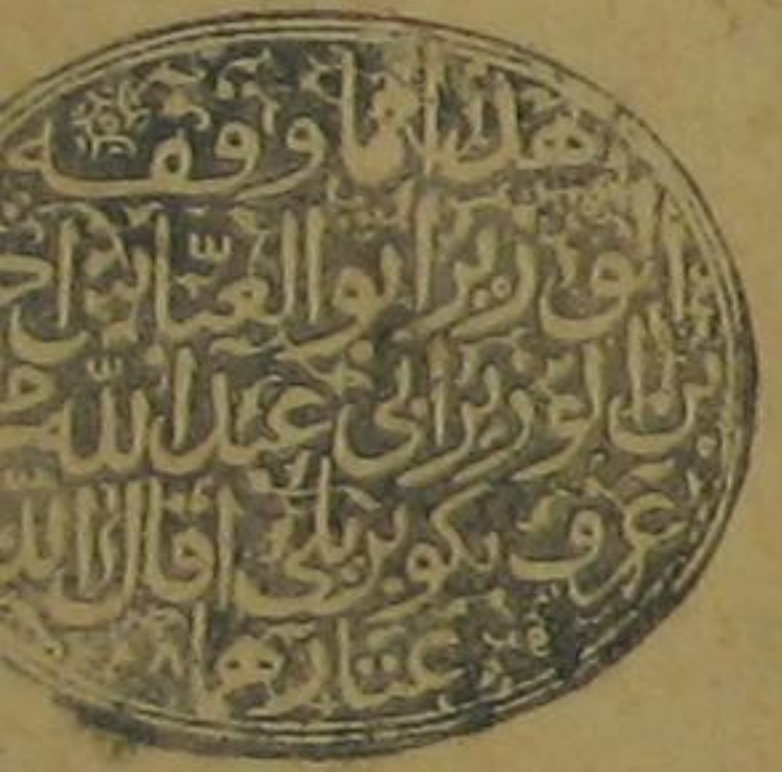 هذا ما وقفه
الوزير ابو العباس
بن الوزير ابي عبد الله
عرف بكوبريلي اقال الله
عثارهما